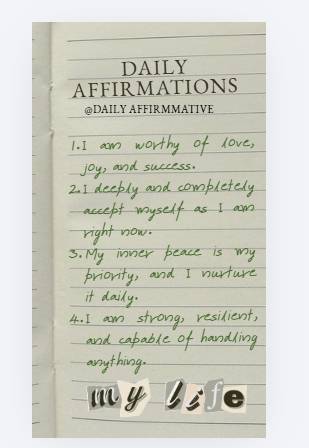 DAILY
AFFIRMATIONS
@DAILY AFFIRMMATIVE
1. I am worthy of love,
joy, and success.
2. I deeply and completely
accept myself as I am
right now.
3. My inner peace is my
priority, and I nurture
it daily.
4. I am strong, resilient,
and capable of handling
anything.
my life